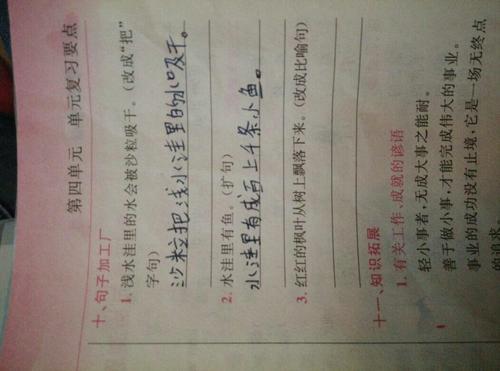 第四单元 单元复习要点
十、句子加工厂
1. 浅水洼里的水会被沙粒吸干。(改成“把”
字句)
沙粒把浅水洼里的水吸干。
2. 水洼里有鱼。(扩句)
水洼里有成百上千条小鱼。
3. 红红的枫叶从树上飘落下来。(改成比喻句)
十一、知识拓展
1. 有关工作、成就的谚语
轻小事者,无成大事之能耐。
善于做小事,才能完成伟大的事业。
事业的成功没有止境,它是一场无终点
的追求